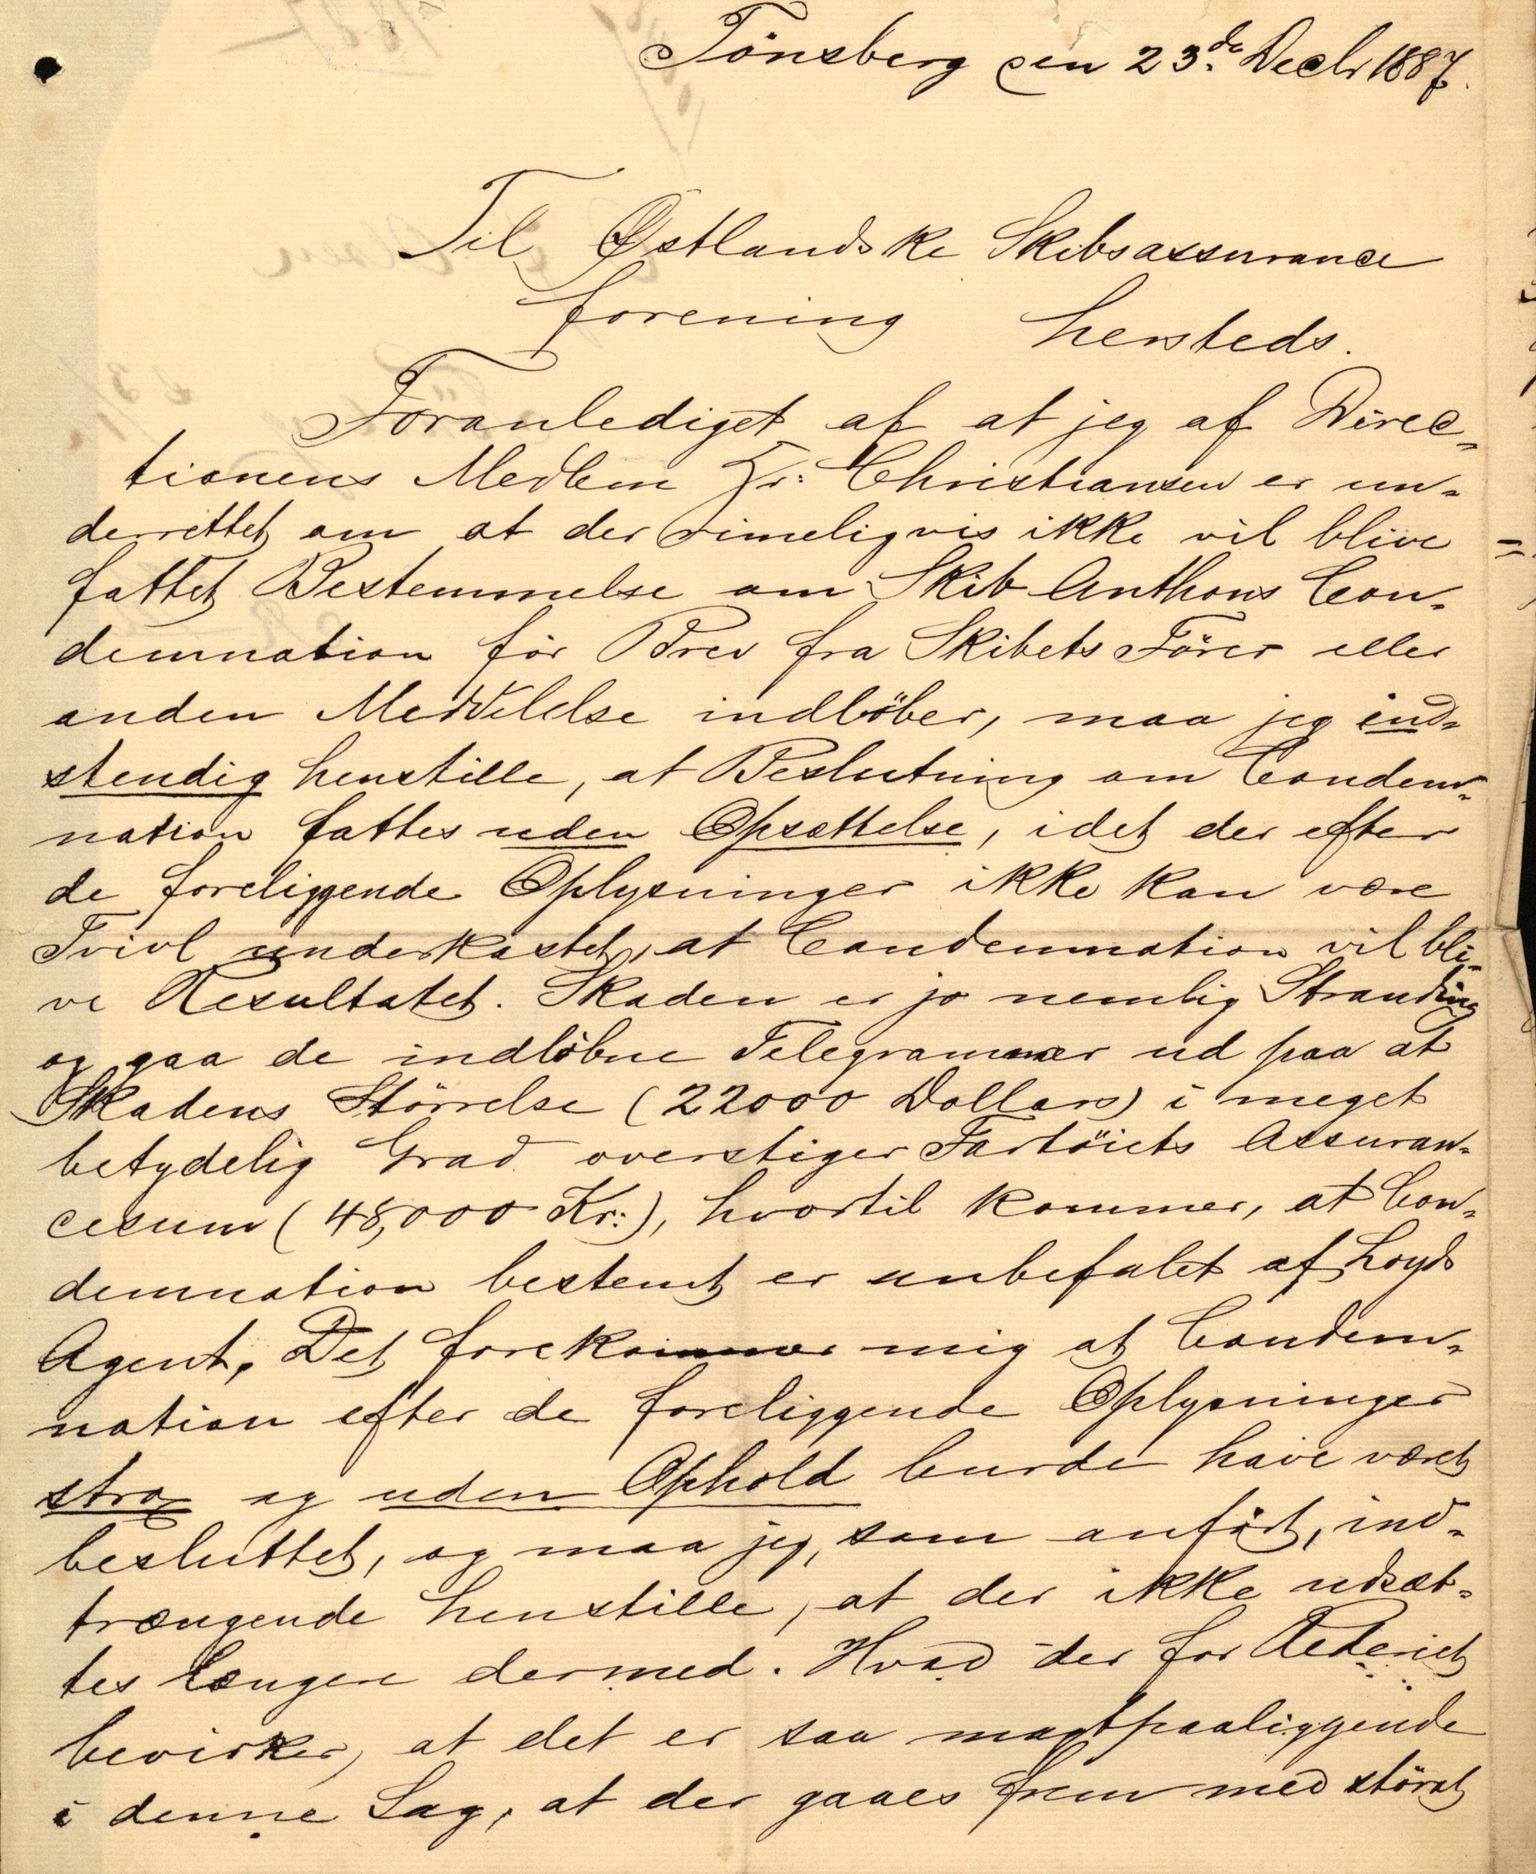 Tönsberg den 23de Decbr 1887.
Til Østlandske Skibsassurance
forening hersteds.
Foranlediget af at jeg af Direc-
tionens Medlem Hr: Christiansen er un-
derrettet om at der rimeligvis ikke vil blive
fattet Bestemmelse om Skib Anthons Con-
demnation för Brev fra Skibets Förer eller
anden Meddelelse indlöber, maa jeg ind-
stendig henstille, at Beslutning om Condem-
nation fattes uden Opsættelse, idet der efter
de foreliggende Oplysninger ikke kan være
Tvivl underkastet, at Condemnation vil bli-
ve Resultatet. Skaden er jo nemlig Stranding
og gaa de indlöbne Telegrammer ud paa at
Skadens Störrelse (22000 Dollars) i meget
betydelig Grad overstiger Fartöiets Assuran-
cesum (48,000 Kr:), hvortil kommer, at Con-
demnation bestemt er anbefalet af Loyds
Agent. Det forekommer mig at Condem-
nation efter de foreliggende Oplysninger
strax og uden Ophold burde have været
besluttet, og maa jeg, som anfört, ind-
trængende henstille, at der ikke udsæt-
tes længere dermed. Hvad der for Rederiet
bevirker, at det er saa magtpaaliggende
i denne Sag, at der gaaes frem med störst